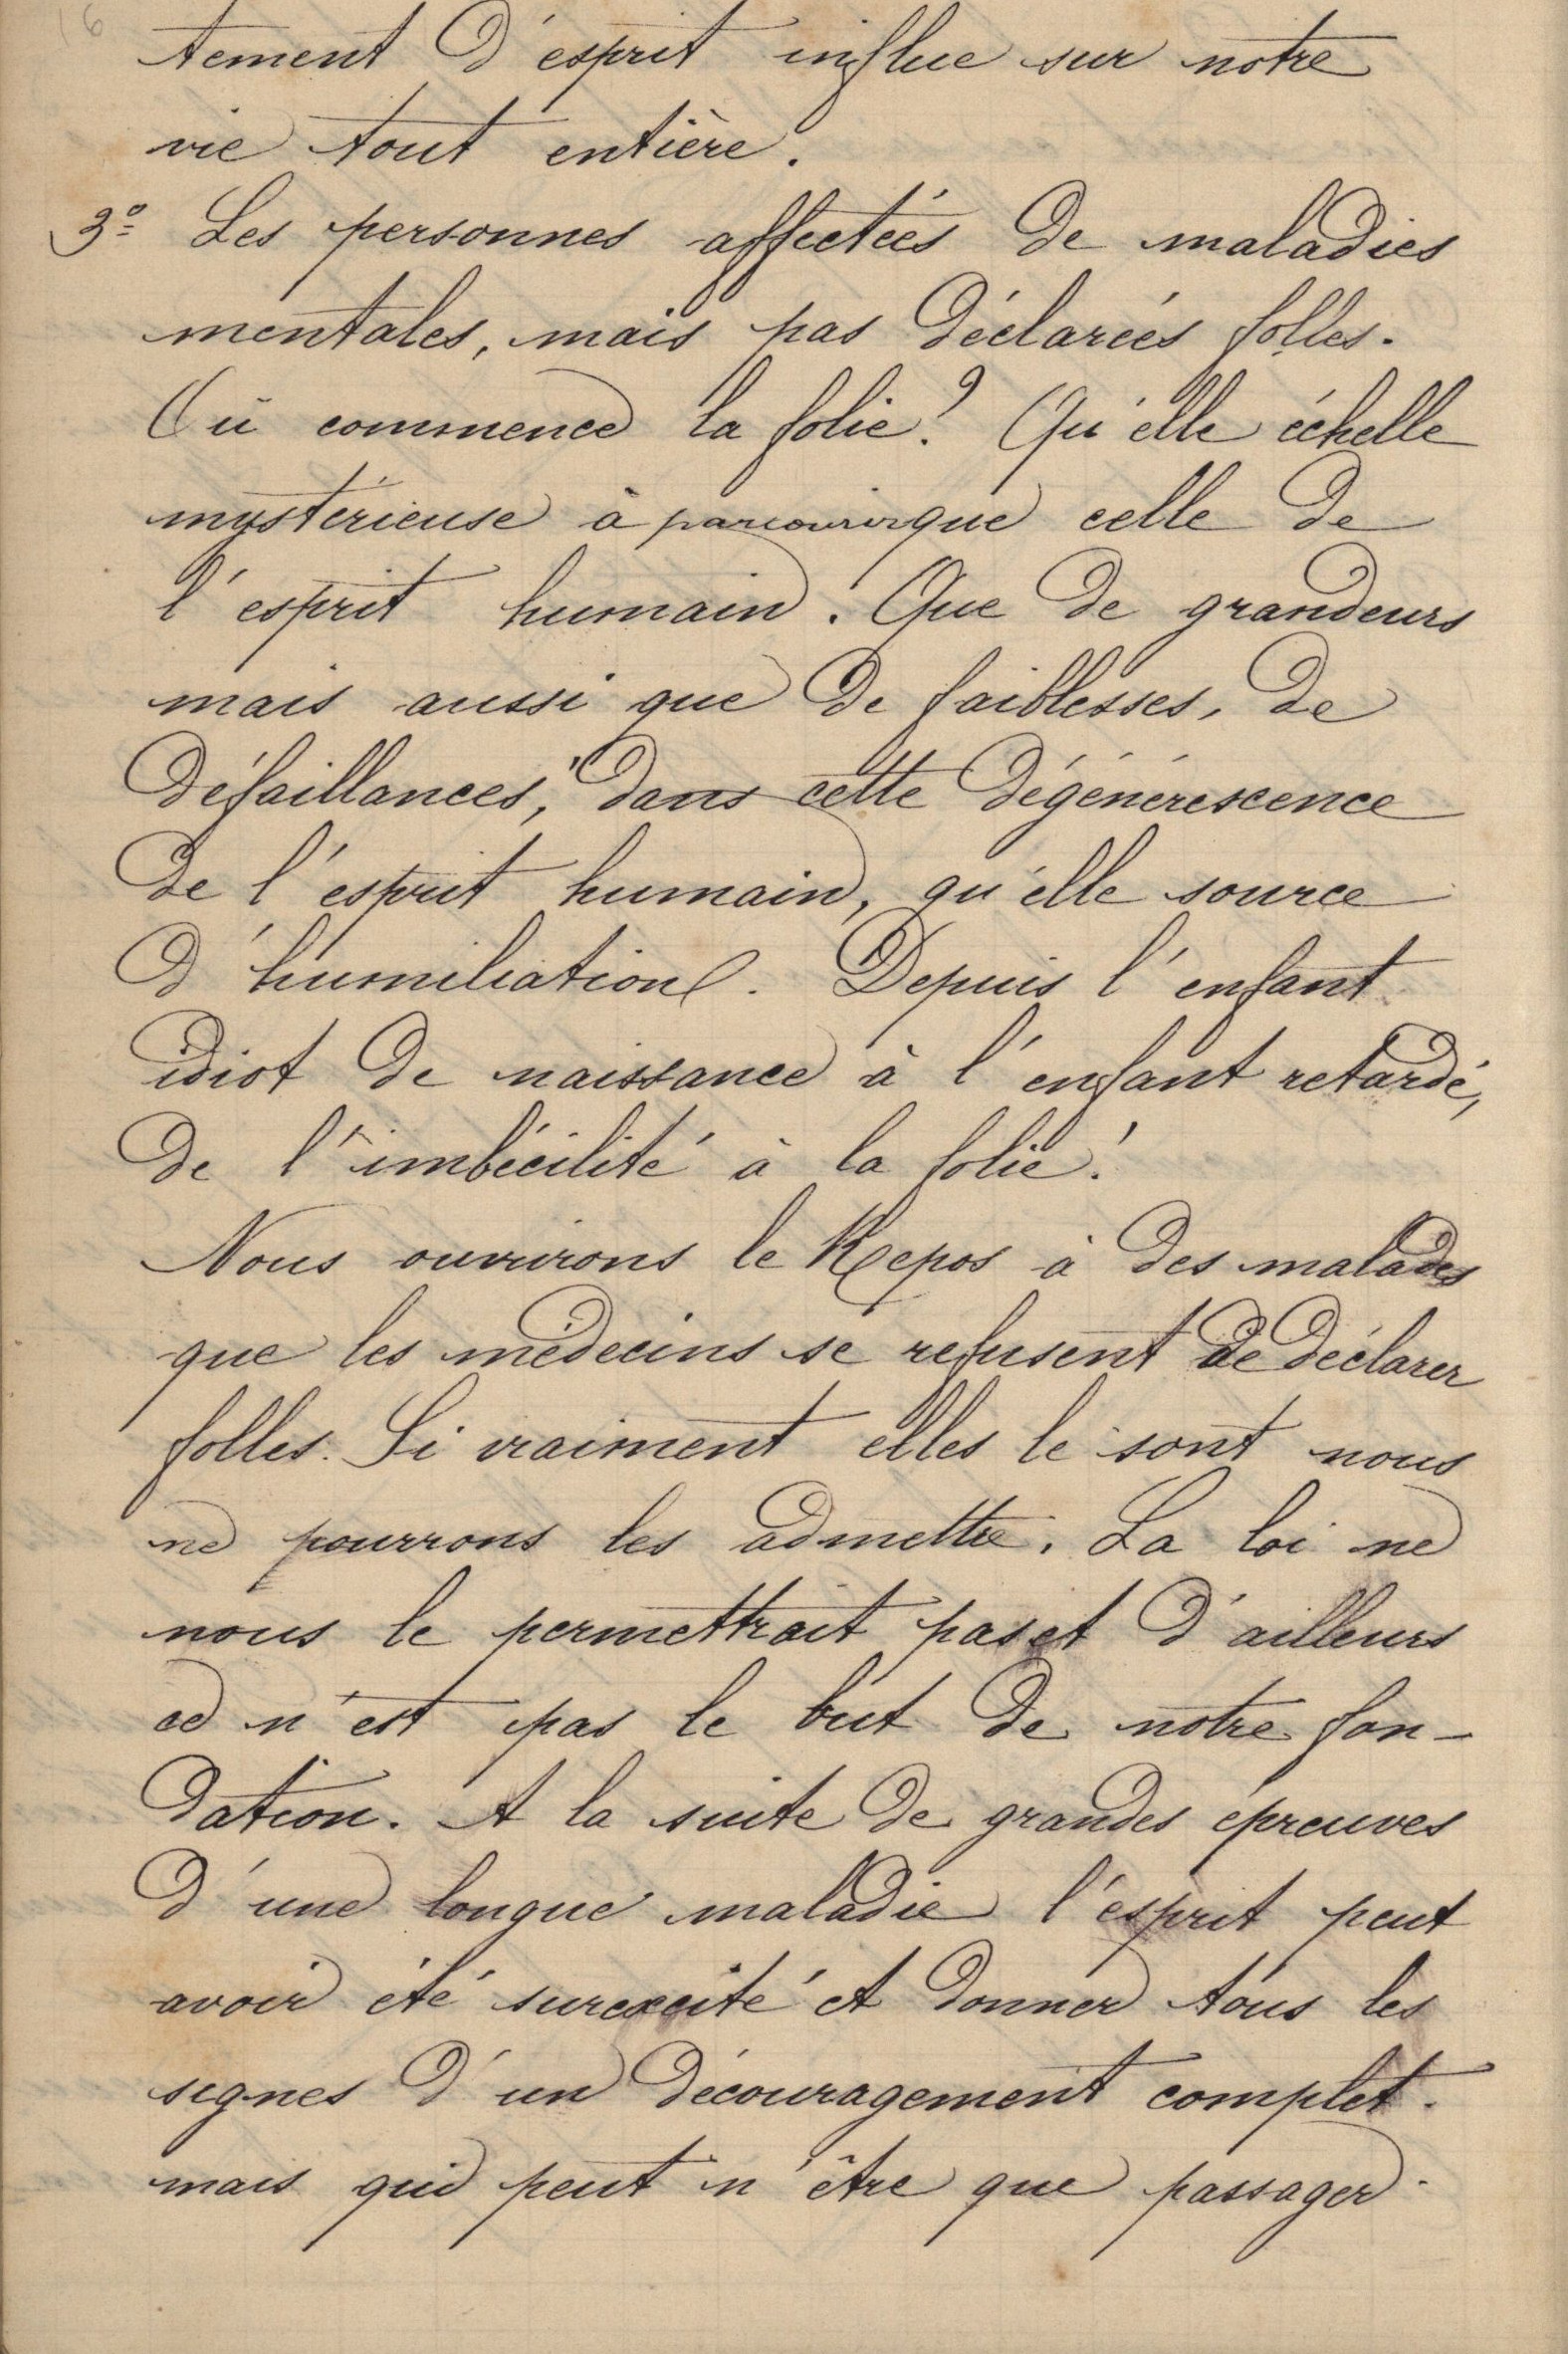 16
tement d'esprit influe sur notre
vie tout entière.
3º Les personnes affectées de maladies
mentales, mais pas déclarées folles.
Où commence la folie? Qu'elle échelle
mystérieuse à parcourir que celle de
l'esprit humain. Que de grandeurs
mais aussi que de faiblesses, de
défaillances, dans cette dégénérescence
de l'esprit humain, qu'elle source
d'humiliation. Depuis l'enfant
idiot de naissance à l'enfant retardé,
de l'imbécilité à la folie!
Nous ouvrirons le Repos à des malades
que les médecins se refusent de déclarer
folles. Si vraiment elles le sont nous
ne pourrons les admettre. La loi ne
nous le permettrait pas et d'ailleurs
ce n'est pas le but de notre fon-
dation. A la suite de grandes épreuves
d'une longue maladie l'esprit peut
avoir été surexcité et donner tous les
signes d'un découragement complet.
mais qui peut n'être que passager.